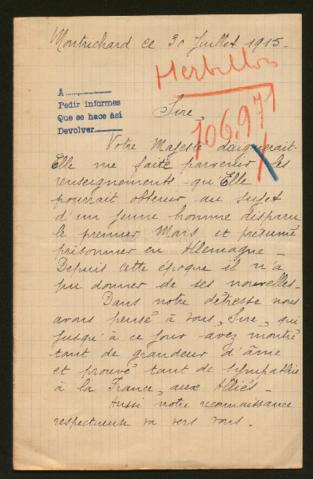 Montrichard ce 30 Juillet 1915.
Herbillon
A
Pedir informes
Que se hace ási
Devolver
106.971
Sire,
Votre Majesté daignerait
Elle me faire parvenir les
renseignements qu'Elle
pourrait obtenir au sujet
d'un jeune homme disparu
le premier Mars et présumé
prisonnier en Allemagne _
Depuis cette époque il n'a
pu donner de ses nouvelles _
Dans notre détresse nous
avons pensé à vous, Sire, qui
jusqu'à ce jour avez montré
tant de grandeur d'âme
et prouvé tant de sympathie
à la France, aux Alliés _
Aussi notre reconnaissance
respectueuse va vers vous _